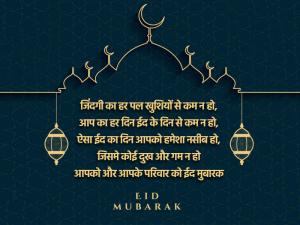 जिंदगी का हर पल खुशियों से कम न हो,
आप का हर दिन ईद के दिन से कम न हो,
ऐसा ईद का दिन आपको हमेशा नसीब हो,
जिसमे कोई दुख और गम न हो
आपको और आपके परिवार को ईद मुबारक
EID
MUBARAK